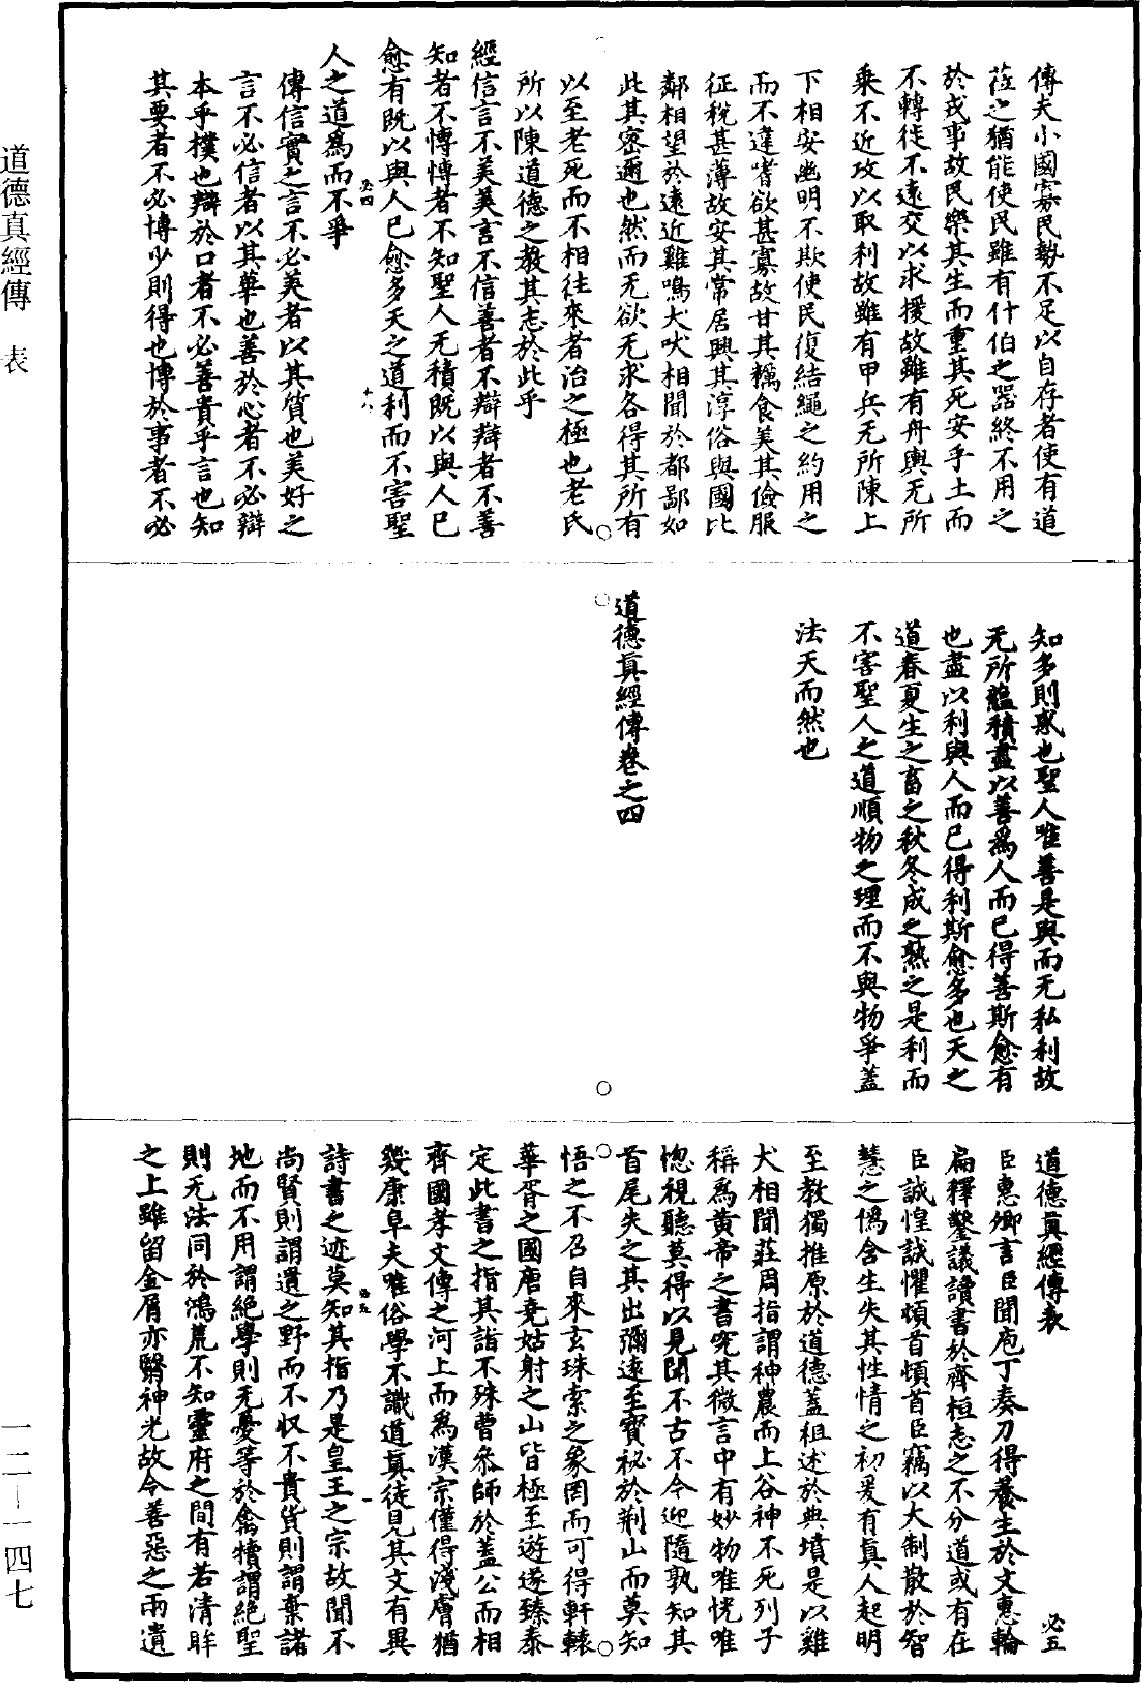 傳夫小國寡民勢不足以自存者使有道
莅之猶能使民雖有什伯之器終不用之
於戎事故民樂其生而重其死安乎土而
不轉徙不遠交以求援故雖有舟輿无所
乘不近攻以取利故雖有甲兵无所陳上
下相安幽明不欺使民復結繩之約用之
而不違嗜欲甚寡故甘其糲食美其儉服
征稅甚薄故安其常居興其淳俗與國比
鄰相望於遠近雞鳴犬吠相聞於都鄙如
此其密邇也然而无欲无求各得其所有
以至老死而不相往來者治之極也老氏
所以陳道德之教其志於此乎
經信言不美美言不信善者不辯辯者不善
知者不博博者不知聖人无積既以與人已
愈有既以與人已愈多天之道利而不害聖
人之道為而不爭
傳信實之言不必美者以其質也美好之
言不必信者以其華也善於心者不必辯
本乎樸也辯於口者不必善貴乎言也知
其要者不必博少則得也博於事者不必
知多則惑也聖人唯善是與而无私利故
无所蘊積盡以善為人而已得善斯愈有
也盡以利與人而已得利斯愈多也天之
道春夏生之畜之秋冬成之熟之是利而
不害聖人之道順物之理而不與物爭蓋
法天而然也
道德真經傳卷之四
道德真經傳表
必五
臣惠卿言臣聞庖丁奏刀得養生於文惠輪
扁釋鑿議讀書於齊桓志之不分道或有在
臣誠惶誠懼頓首頓首臣竊以大制散於智
慧之偽含生失其性情之初爰有真人起明
至教獨推原於道德蓋祖述於典墳是以雞
犬相聞莊周指謂神農而上谷神不死列子
稱為黃帝之書究其微言中有妙物唯恍唯
惚視聽莫得以見聞不古不今迎隨孰知其
首尾失之其出彌遠至寶祕於荆山而莫知
悟之不召自來玄珠索之象罔而可得軒轅
華胥之國唐堯姑射之山皆極至遊遂臻泰
定此書之指其詣不殊曹參師於蓋公而相
齊國孝文傳之河上而為漢宗僅得淺膚猶
幾康阜夫唯俗學不識道真徒見其文有異
詩書之迹莫知其指乃是皇王之宗故聞不
尚賢則謂遺之野而不収不貴貨則謂棄諸
地而不用謂絕學則无憂等於禽犢謂絕聖
則无法同於鴻荒不知靈府之間有若清眸
之上雖留金屑亦翳神光故今善惡之兩遺
道德真經傳　表
一二—一四七